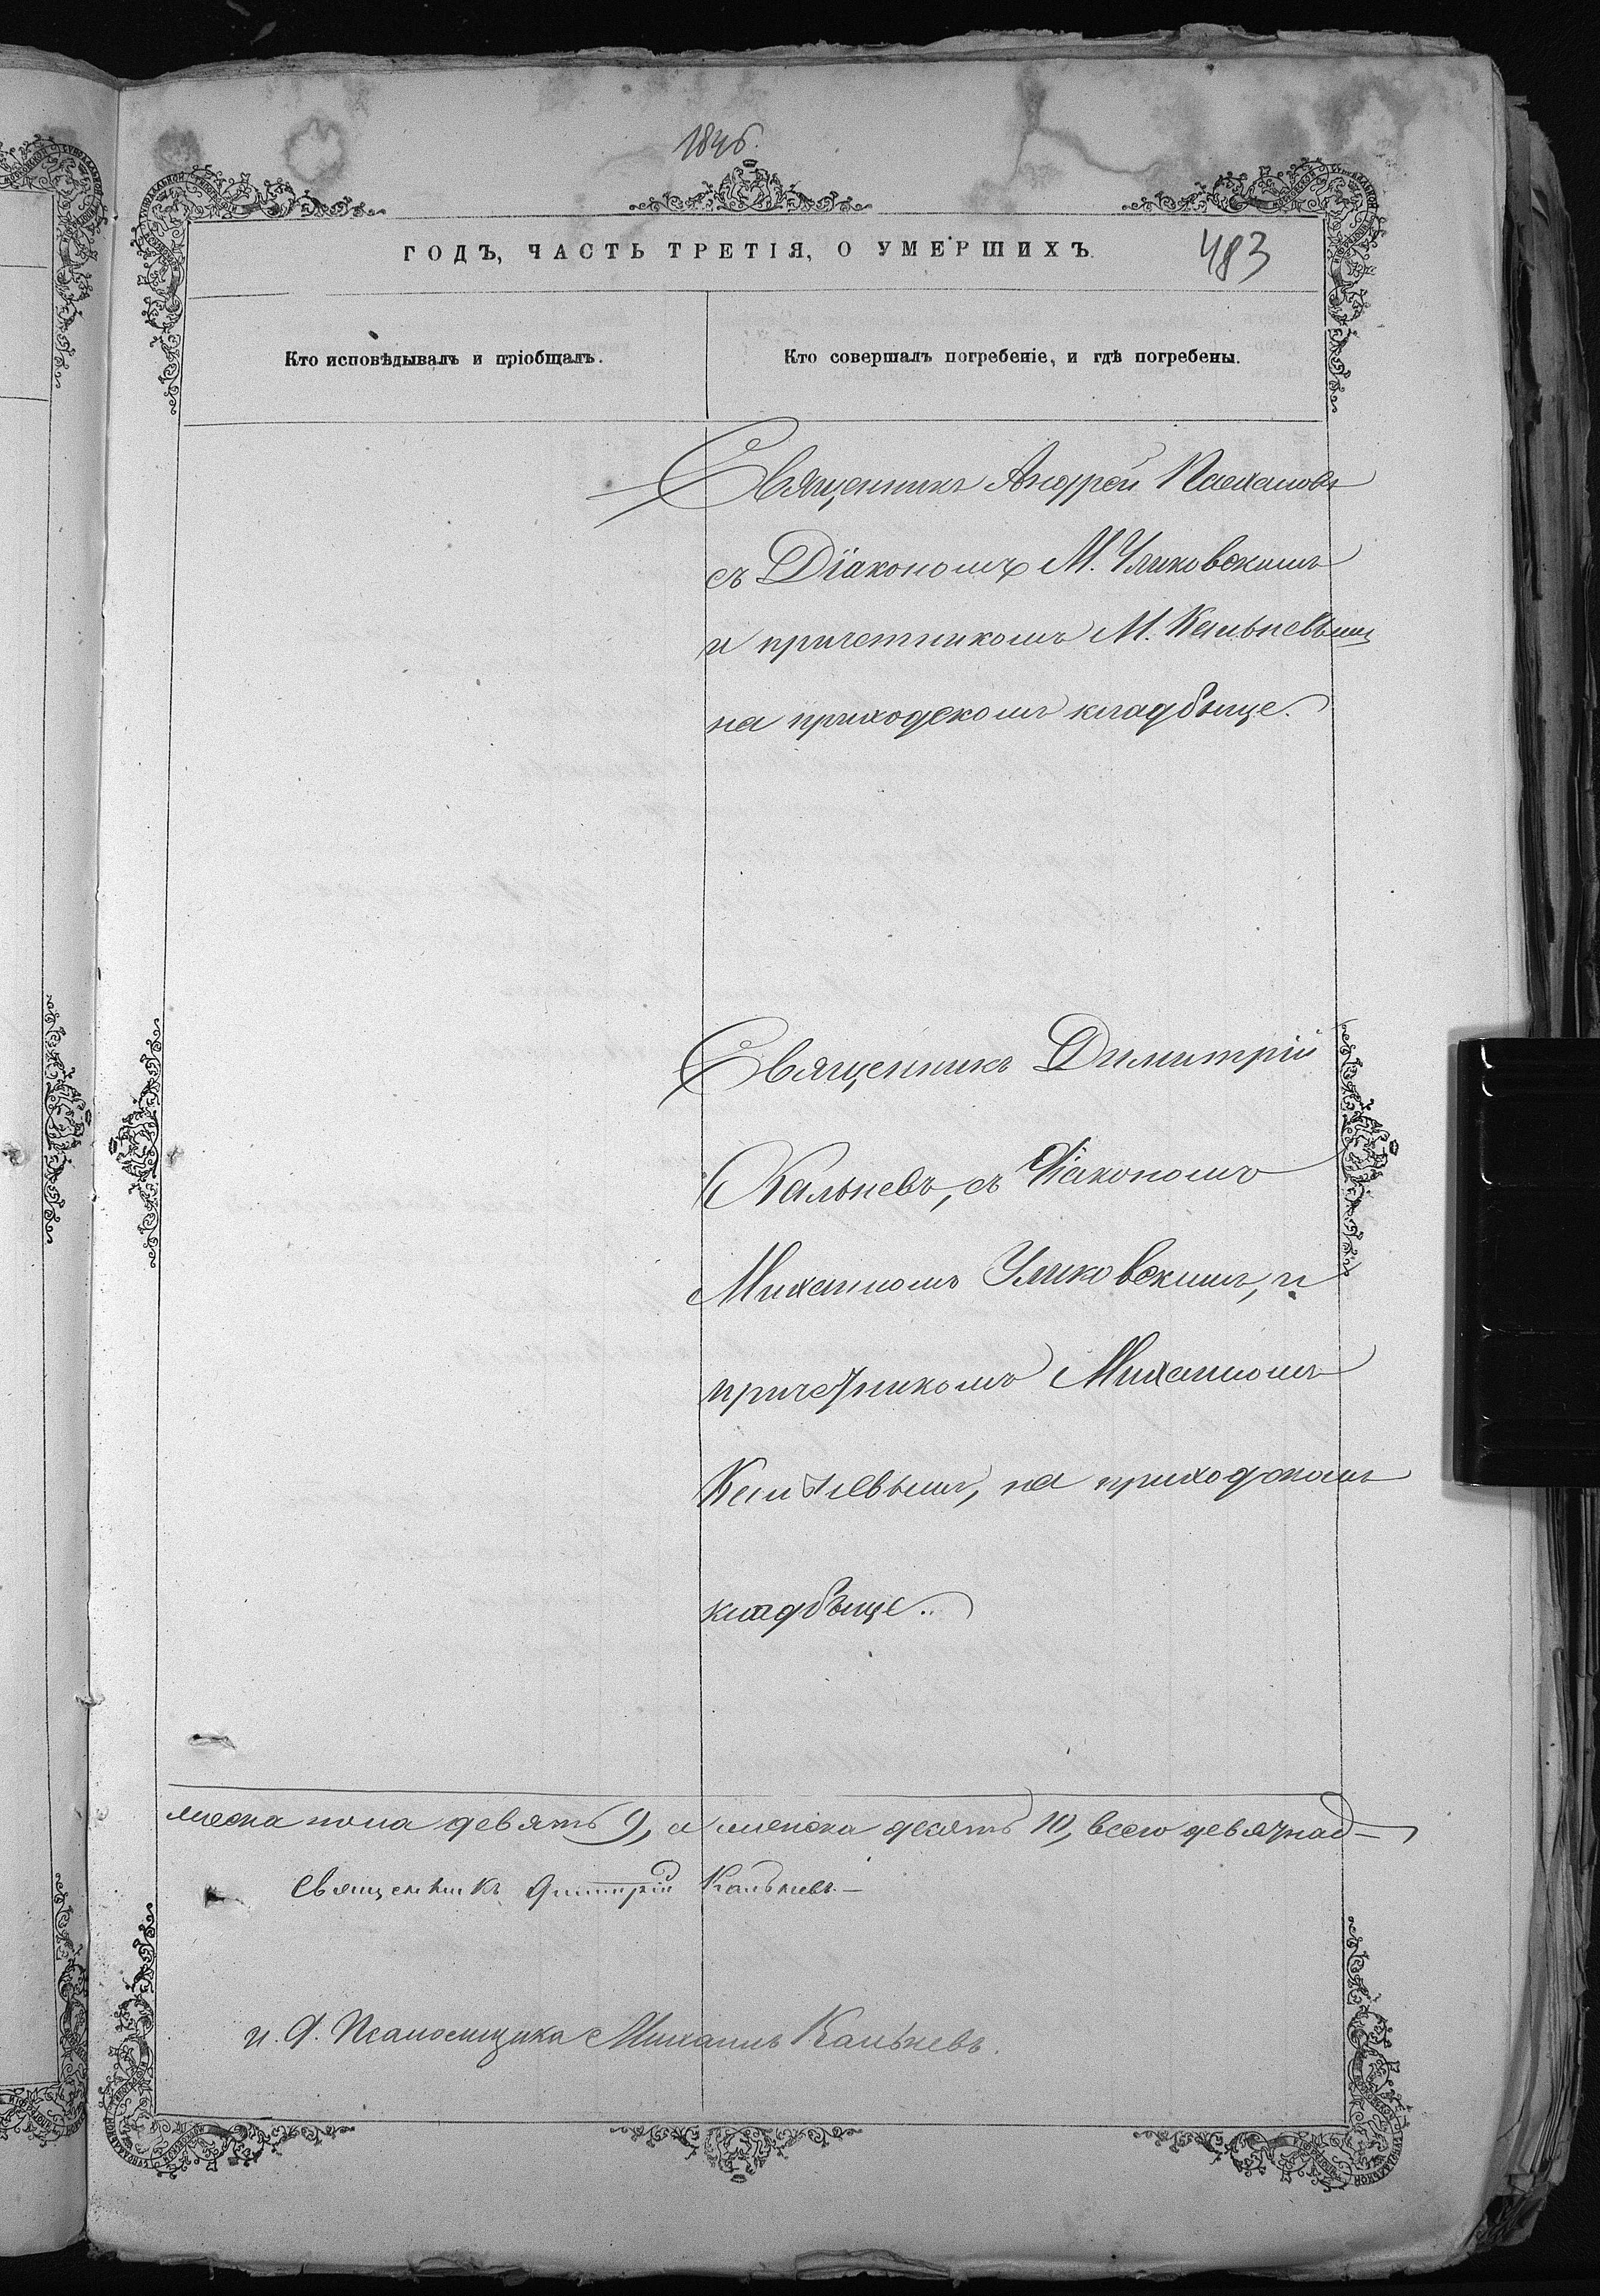 184б.
ГОДЪ, ЧАСТЬ ТРЕТІЯ, О УМЕРШИХЪ.
483
Кто исповѣдывалъ и пріобщалъ.
Кто совершалъ погребеніе, и гдѣ погребены.
Священникъ Андрей
съ Діакономъ М. Уликовскимъ
и причетникомъ М. Кальневымъ
на приходскомъ кладбище.
Священникъ Димитрій
Кальневъ, съ Діакономъ
Михаиломъ Уликовскимъ, и
причетникомъ Михаиломъ
Кальневымъ, на приходскомъ
кладбище..
мужеска пола девять 9, а женска десять 10, всего девятнад-
Священникъ Димитрій Кальневъ.—
и. д. Псаломщика Михаилъ Кальневъ.